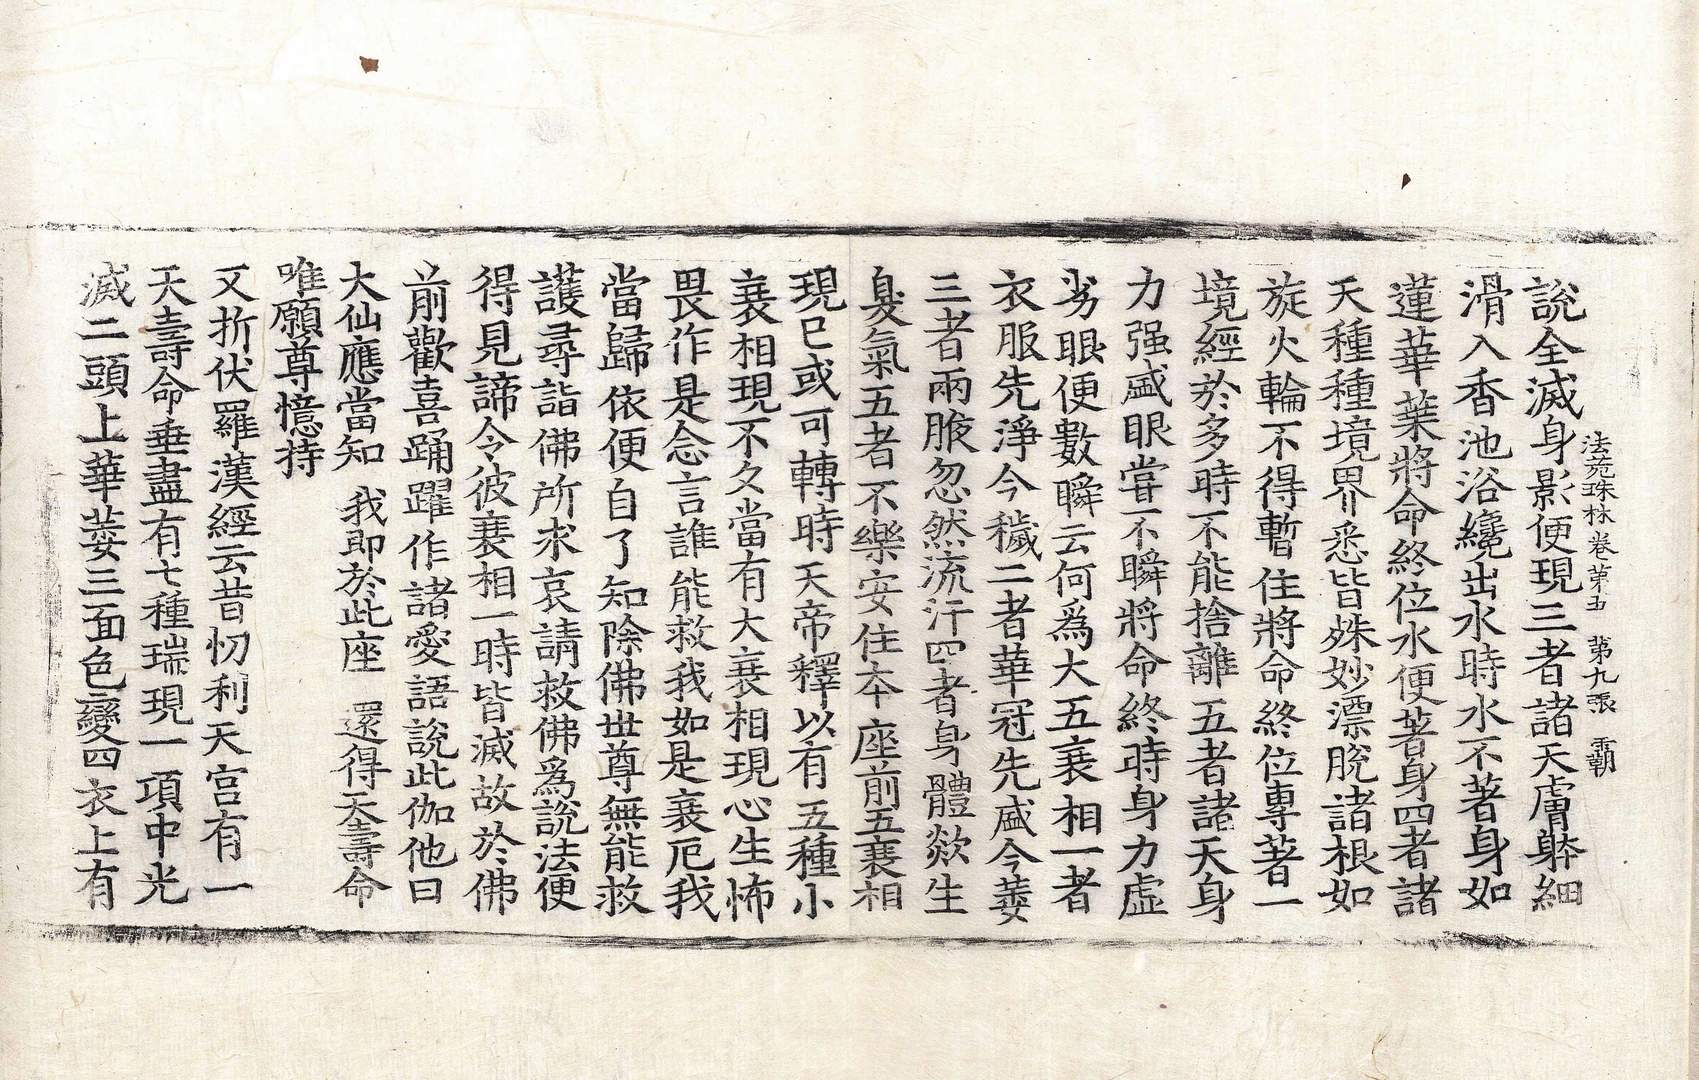 法苑珠林卷第五　第九張　霸
說全滅身影便現三者諸天膚軆細
滑入香池浴纔出水時水不著身如
蓮華葉將命終位水便著身四者諸
天種種境界悉皆殊妙漂脫諸根如
旋火輪不得暫住將命終位專著一
境經於多時不能捨離五者諸天身
力强盛眼嘗不瞬將命終時身力虛
劣眼便數瞬云何為大五衰相一者
衣服先淨今穢二者華冠先盛今萎
三者兩腋忽然流汗四者身體欻生
臭氣五者不樂安住本座前五衰相
現已或可轉時天帝釋以有五種小
衰相現不久當有大衰相現心生怖
畏作是念言誰能救我如是衰厄我
當歸依便自了知除佛世尊無能救
護尋詣佛所求哀請救佛為說法便
得見諦令彼衰相一時皆滅故於佛
前歡喜踊躍作諸愛語說此伽他曰
大仙應當知　我即於此座　還得天壽命
唯願尊憶持
又折伏羅漢經云昔忉利天宮有一
天壽命垂盡有七種瑞現一項中光
滅二頭上華萎三面色變四衣上有